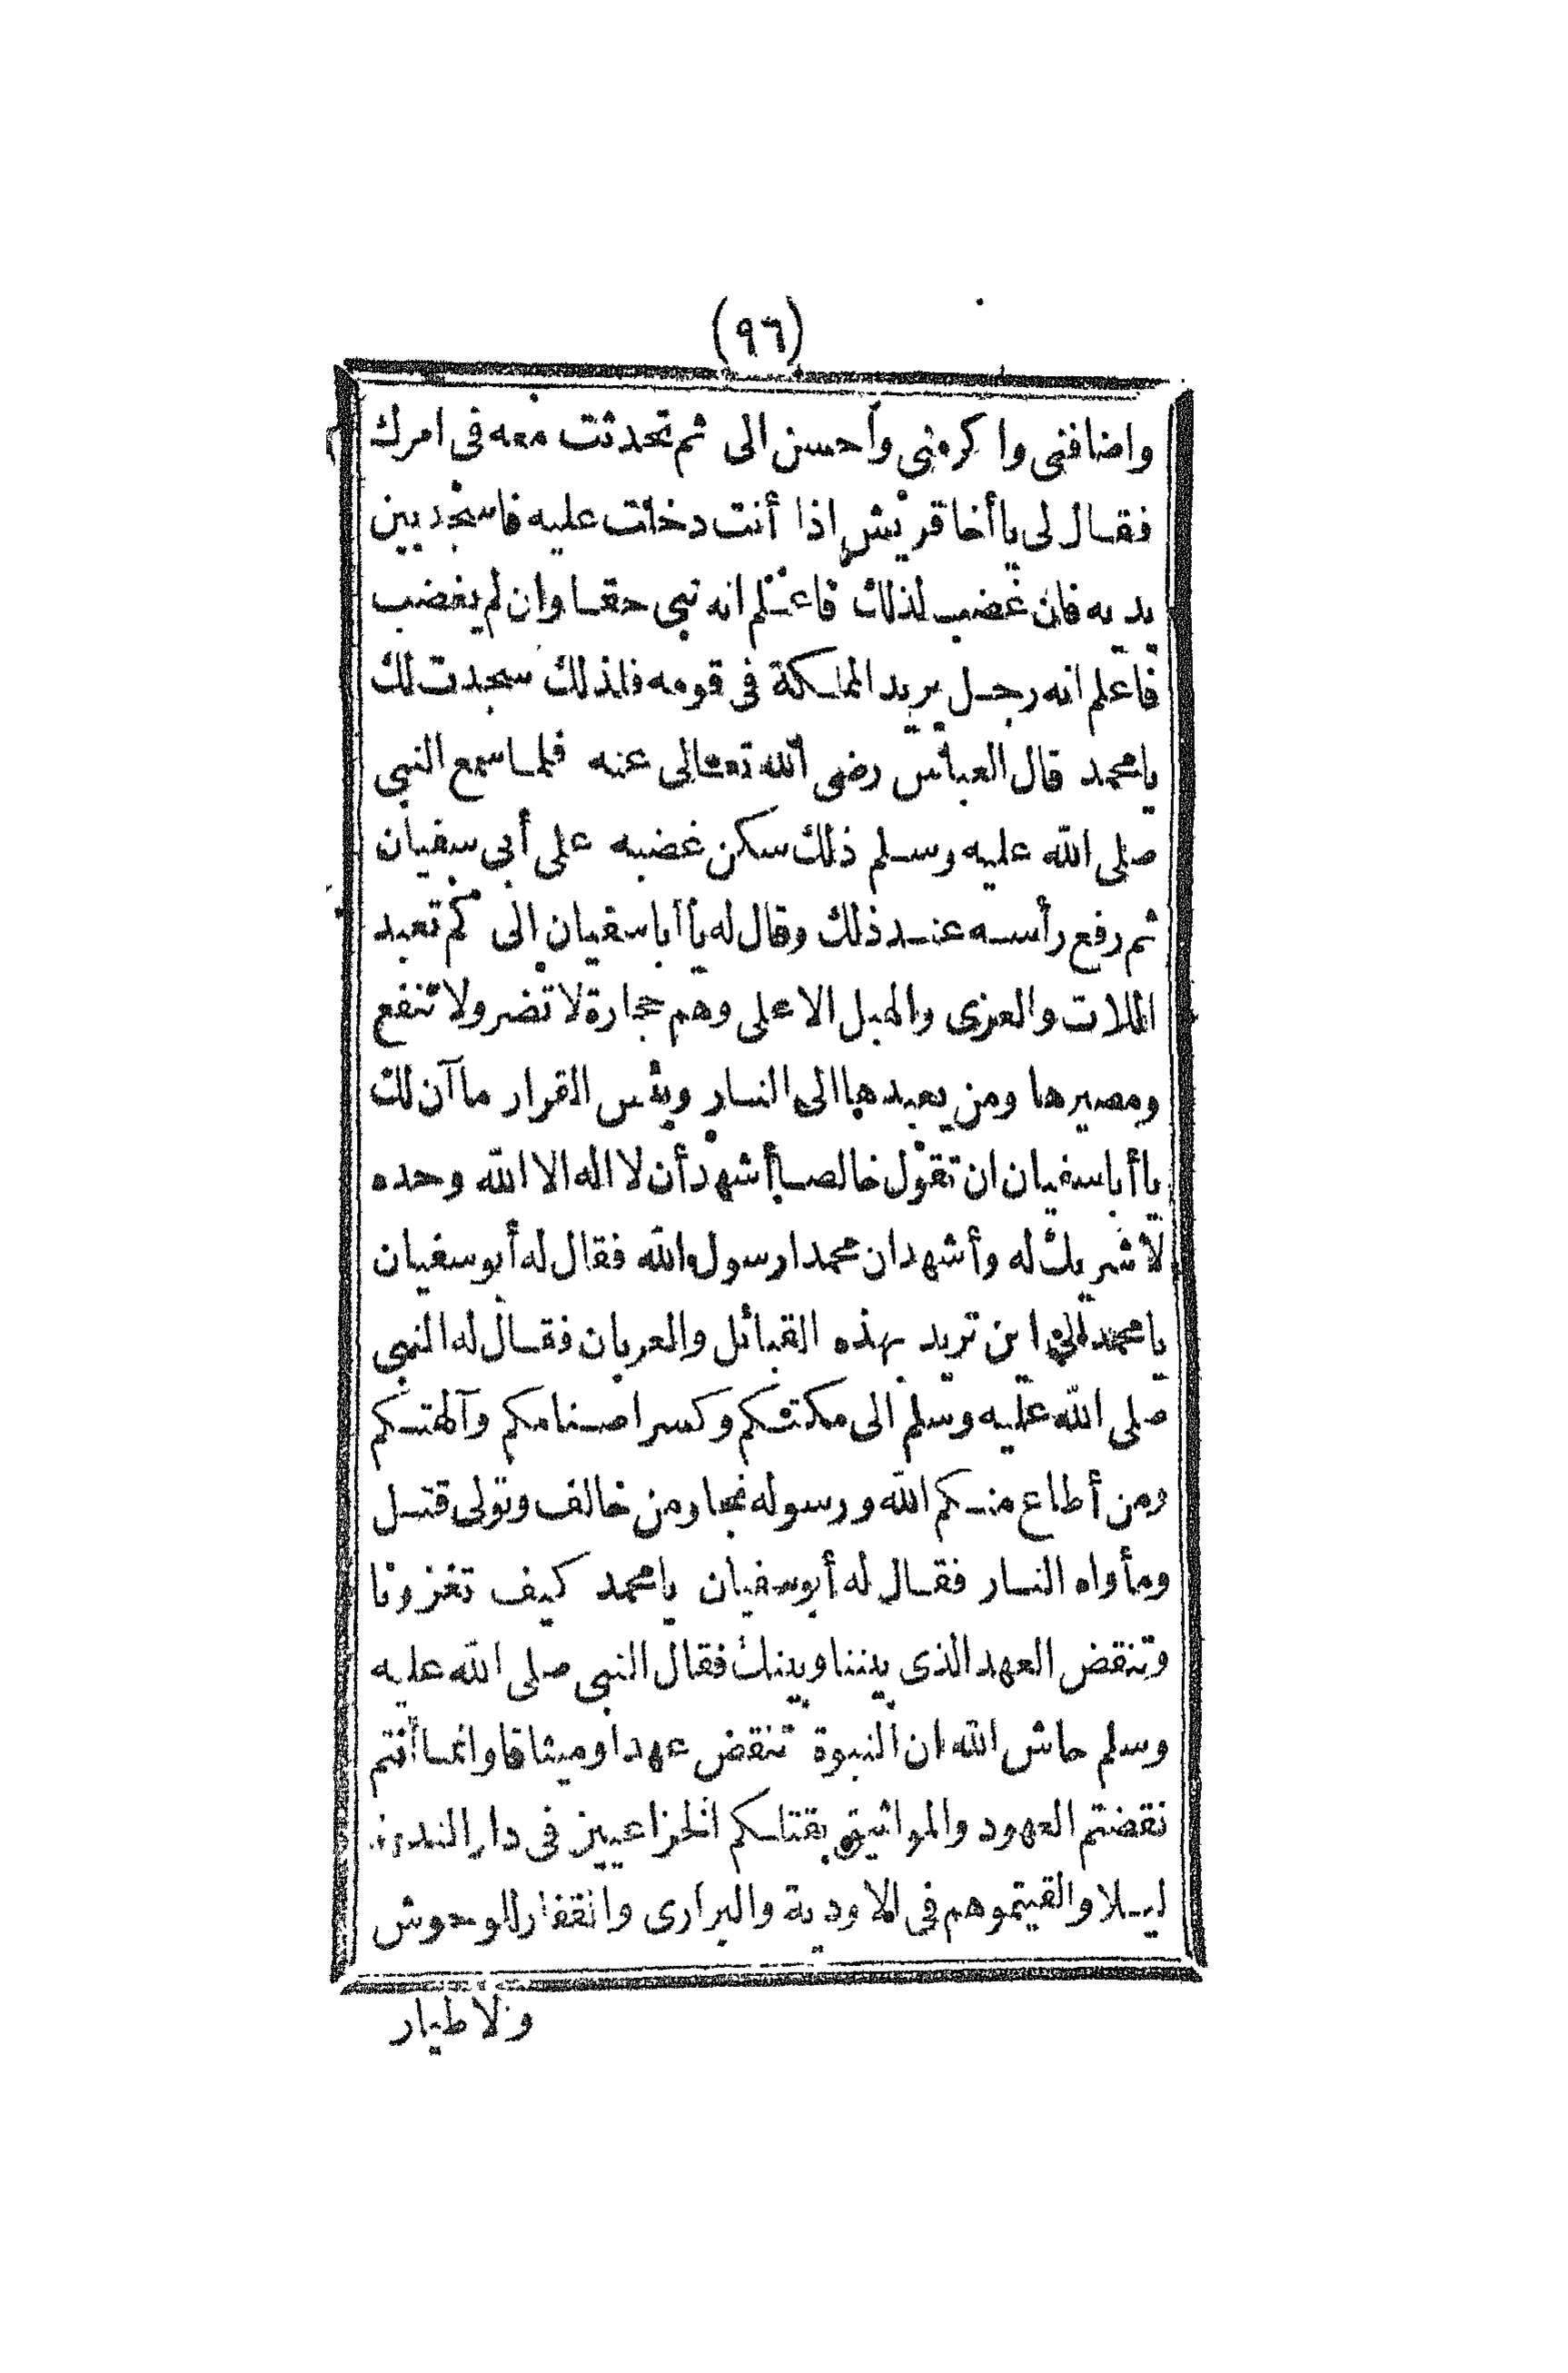 (٩٦)
واضافنى واكرمنى وأحسن الى ثم تحدثت معه فى امرك
فقال لى ياأخا قريش اذا أنت دخلت عليه فاسجد بين
يديه فان غضب لذلك فاعلم انه نبى حقا وان لم يغضب
فاعلم انه رجل يريد المملكة فى قومه فلذلك سجدت لك
يامحمد قال العباس رضى الله تعالى عنه فلما سمع النبى
صلى الله عليه وسلم ذلك سكن غضبه على أبى سفيان
ثم رفع رأسه عند ذلك وقال له ياأباسفيان الى كم تعبد
اللات والعزى والهبل الاعلى وهم حجارة لا تضر ولا تنفع
ومصيرها ومن يعبدها الى النار وبئس القرار ما آن لك
ياأباسفيان ان تقول خالصا أشهد أن لا اله الا الله وحده
لا شريك له وأشهد ان محمدا رسول الله فقال له أبوسفيان
يامحمد الى اين تريد بهذه القبائل والعربان فقال له النبى
صلى الله عليه وسلم الى مكتكم وكسر اصنامكم وآلهتكم
ومن أطاع منكم الله ورسوله نجا ومن خالف وتولى قتل
ومأواه النار فقال له أبوسفيان يامحمد كيف تغزونا
وتنقض العهد الذى بيننا وبينك فقال النبى صلى الله عليه
وسلم حاش الله ان النبوة تنقض عهدا وميثاقا وانما أنتم
نقضتم العهود والمواثيق بقتلكم الخزاعيين فى دار الندوة
ليلا والقيتموهم فى الاودية والبرارى والقفار للوحوش
ولاطيار